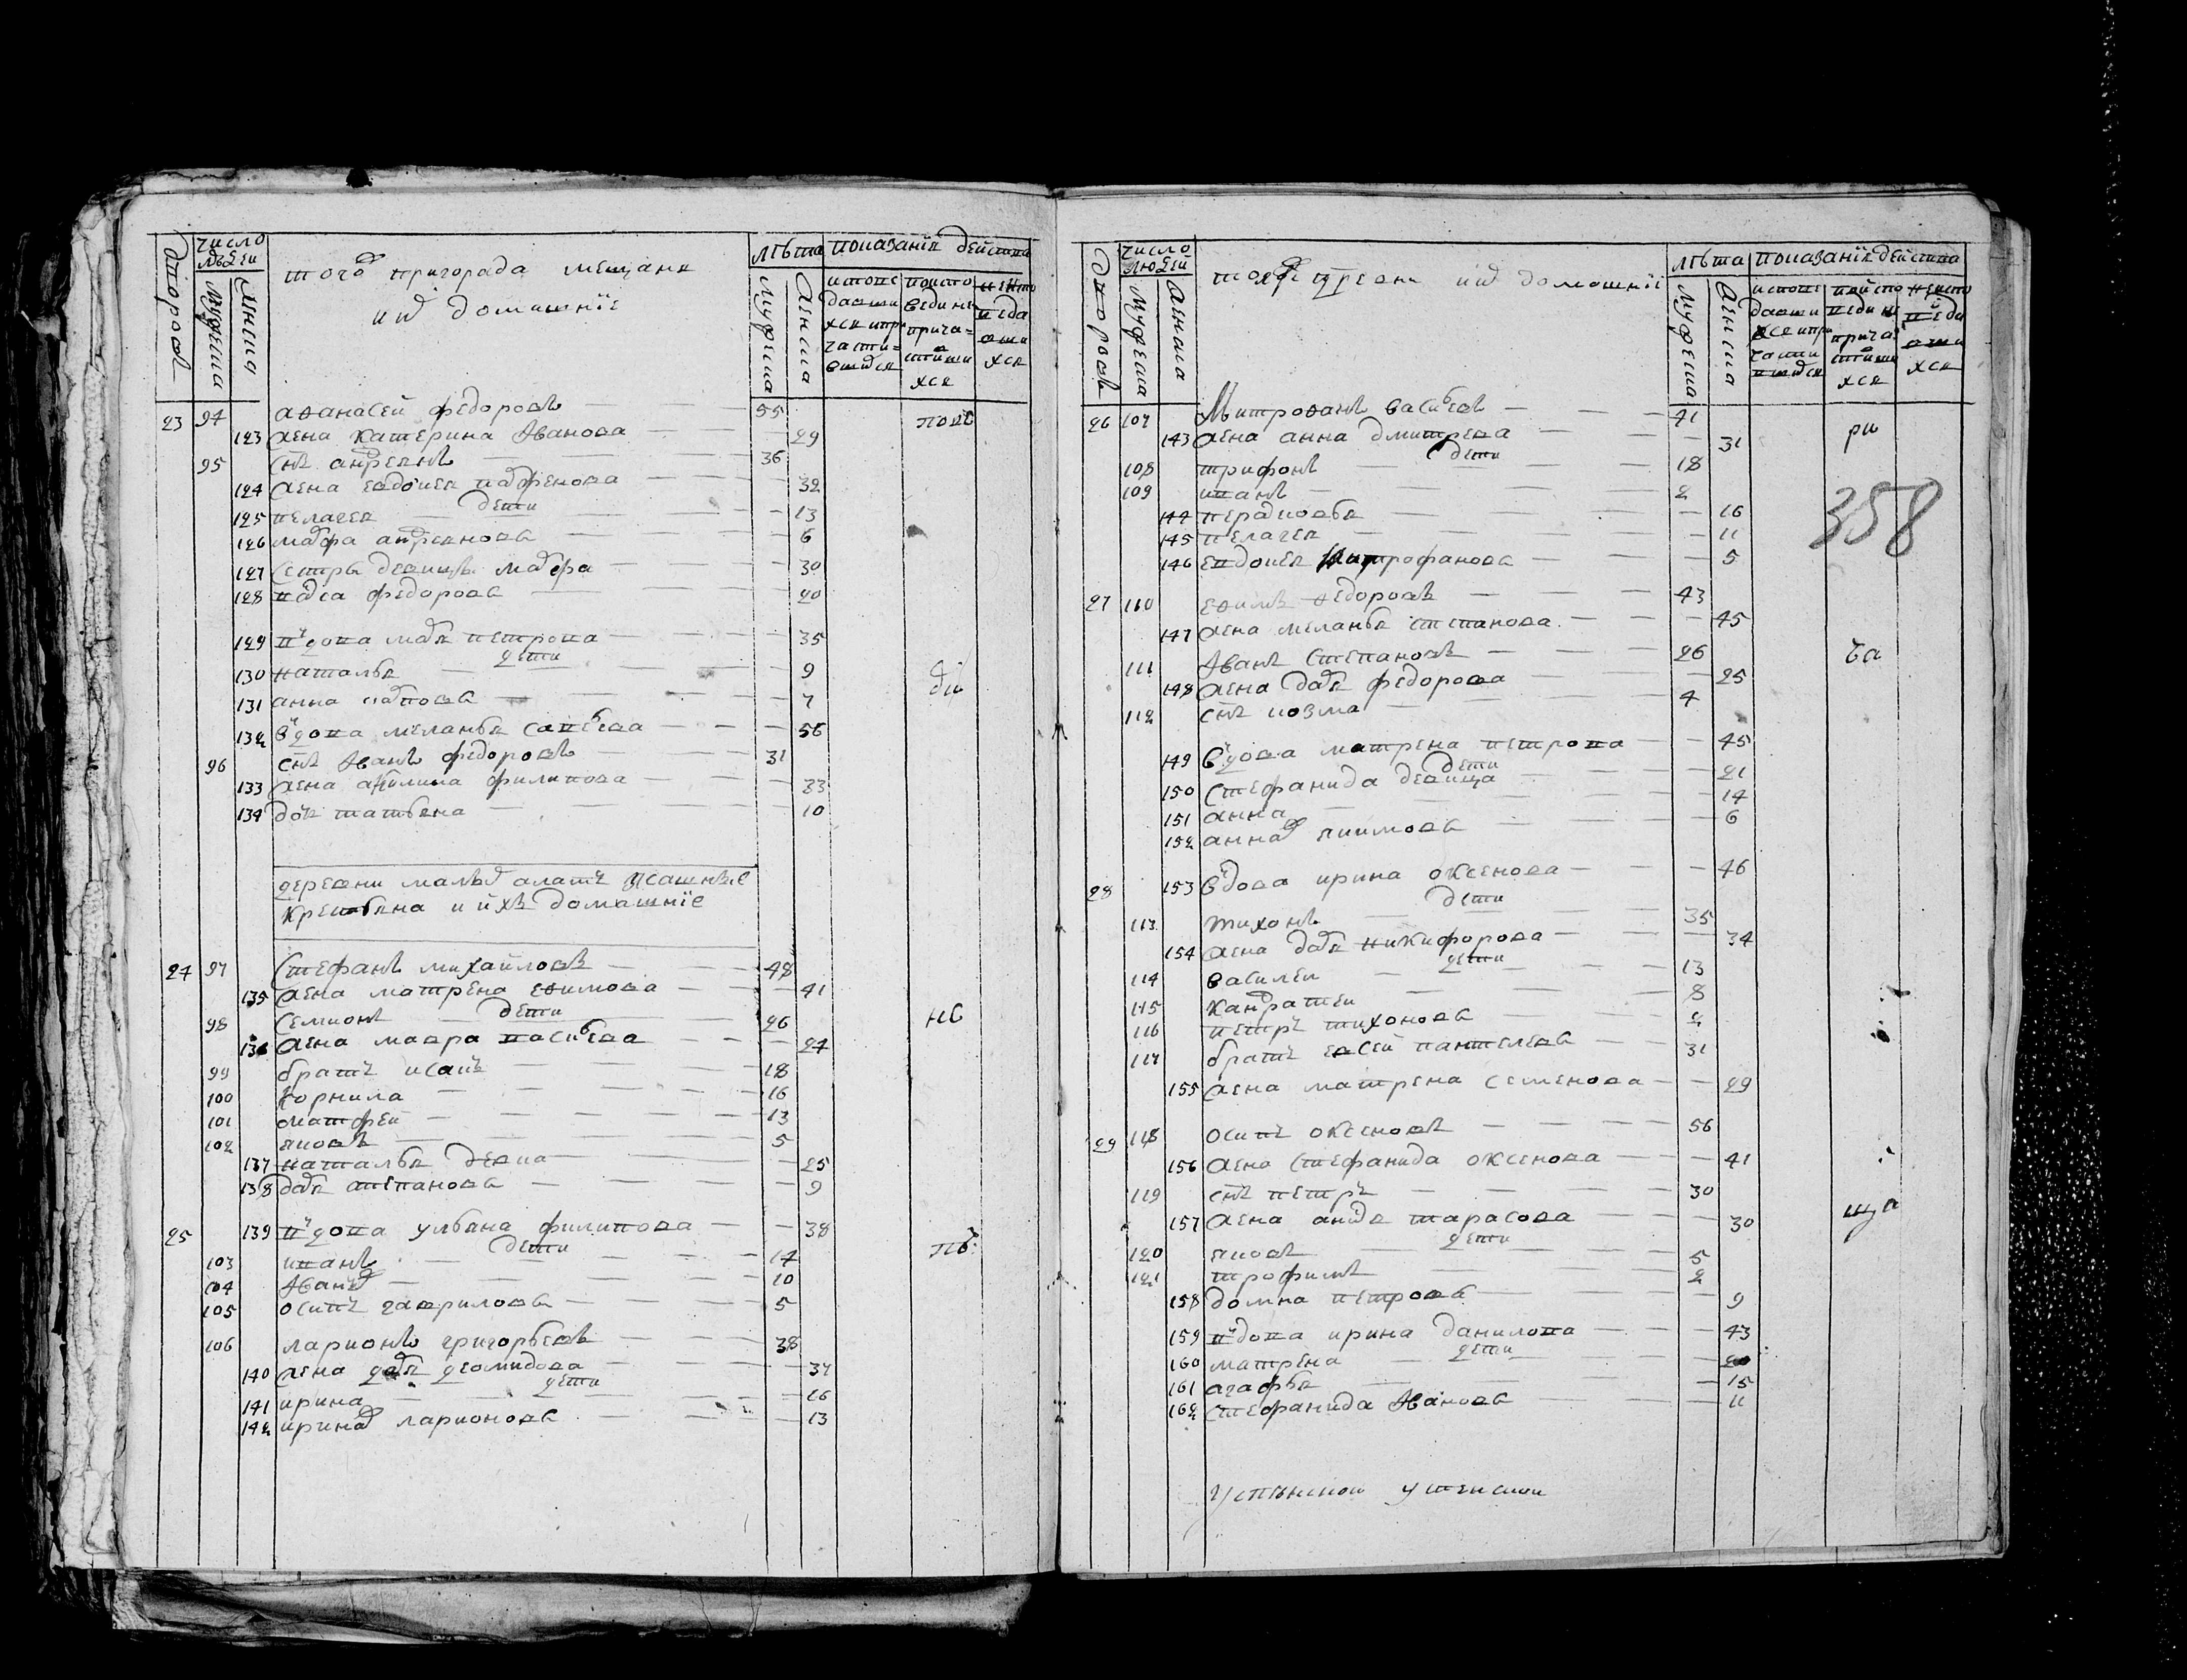 дворовъ
число людеи
мужеска
женска
того пригорада мещане
их домашнïе
лѣта
мужеска
женска
показанïе деиства
исповедавшихся и причастившихся
исповединепричастившихся
неисповедавшихся
23 94 аѳанасеи федоровъ — — 55
123 жена катерина иванова — — 29
95 снъ андреянъ — — 36
124 жена евдокея парфенова — — 32
дети
125 пелагея — — 13
126 марфа андреянова — — 6
127 сестры девицы марфа — — 30
128 федорова — — 20
129 вдова марья петрова — — 35
дети
130 наталья — — 9
131 анна карпова — — 7
132 вдова меланья савельева — — 56
96 снъ иванъ федоровъ — — 31
133 жена акулина филипова — — 23
134 дочь татьяна — — 10
деревни малых алатъ ясашные
крестьяна и ихъ домашнïе
24 97 стефанъ михайловъ — — 48
135 жена матрена ефимова — — 41
дети
98 семионъ — — 26
136 жена мавра васильева — — 27
99 братъ исакъ — — 18
100 корнила — — 16
101 матфеи — — 13
102 яковъ — — 5
137 наталья девка — — 25
138 дарья степанова — — 9
25 139 вдова ульяна филипова — — 38
дети
103 иванъ — — 17
104 иванъ — — 10
105 осипъ гаврилова — — 5
106 ларионъ григорьевъ — — 38
140 жена дарья деомидова — — 37
дети
141 ирина — — 16
142 ирина ларионова — — 13
нс
дворовъ
число людей
мужеска
женска
их домашнïе
лѣта
мужеска
женска
показанïе деиства
исповедавшихся и причастившихся
неисповедавшихся
26 107 митрофанъ васильевъ — — 41
143 жена анна дмитрева — — 31
дети
108 трифонъ — — 18
109 иванъ — — 2
144 — — 16
145 пелагея — — 11
146 евдокея митрофанова — — 5
ри
358
27 110 ефимъ федоровъ — — 43
147 жена меланья степанова — — 45
111 иванъ степановъ — — 26
148 жена дарья федорова — — 25
112 снъ козма — — 4
ча
149 вдова матрена петрова — — 45
дети
150 стефанида девица — — 21
151 анна — — 14
152 анна якимова — — 6
28 153 вдова ирина оксенова — — 46
дети
113 тихонъ — — 35
154 жена дарья никифорова — — 34
дети
114 василеи — — 13
115 кандратеи — — 8
116 петръ тихонова — — 2
117 братъ евсеи пантелева — — 31
155 жена матрена семенова — — 29
29 118 осипъ оксеновъ — — 56
156 жена стефанида оксенова — — 41
119 снъ петръ — — 30
157 жена тарасова — — 30
дети
120 яковъ — — 5
121 трофимъ — — 2
158 домна петрова — — 9
ща
159 вдова ирина данилова — — 43
дети
160 матрена — — 20
161 агафья — — 15
162 стефанида иванова — — 11